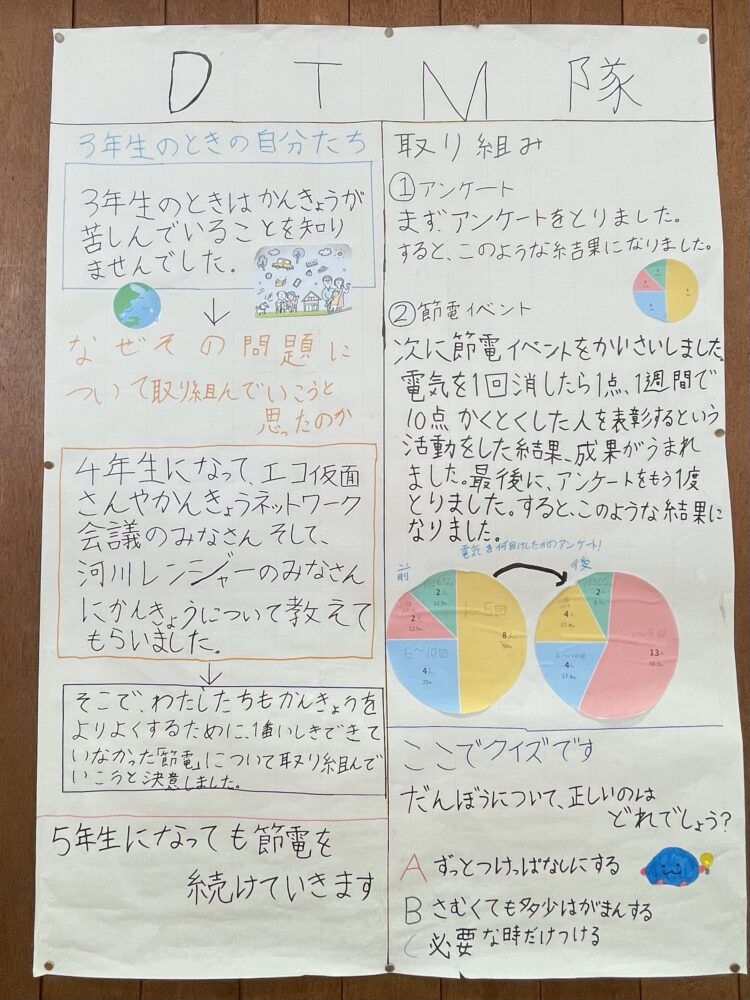 DTM隊
3年生のときの自分たち
3年生のときはかんきょうが
苦しんでいることを知り
ませんでした。
↓
なぜその問題に
ついて取り組んでいこうと
思ったのか
4年生になって、エコ仮面
さんやかんきょうネットワーク
会議のみなさん そして、
河川レンジャーのみなさん
にかんきょうについて教えて
もらいました。
↓
そこで、わたしたちもかんきょうを
よりよくするために、1番いしきできて
いなかった「節電」について取り組んで
いこうと決意しました。
5年生になっても節電を
続けていきます
取り組み
①アンケート
まず、アンケートをとりました。
すると、このような結果になりました。
②節電イベント
次に節電イベントをかいさいしました。
電気を1回消したら1点、1週間で
10点かくとくした人を表彰するという
活動をした結果、成果がうまれ
ました。最後に、アンケートをもう1度
とりました。すると、このような結果に
なりました。
電気を何回けしたかのアンケート!
前
2人
12.5%
2人
12.5%
6〜10回
4人
25%
8人
50%
後
2人
4人
17.4%
4人
17.4%
1〜5回
13人
56.5%
ここでクイズです
だんぼうについて、正しいのは
どれでしょう?
A ずっとつけっぱなしにする
B さむくても多少はがまんする
C 必要な時だけつける